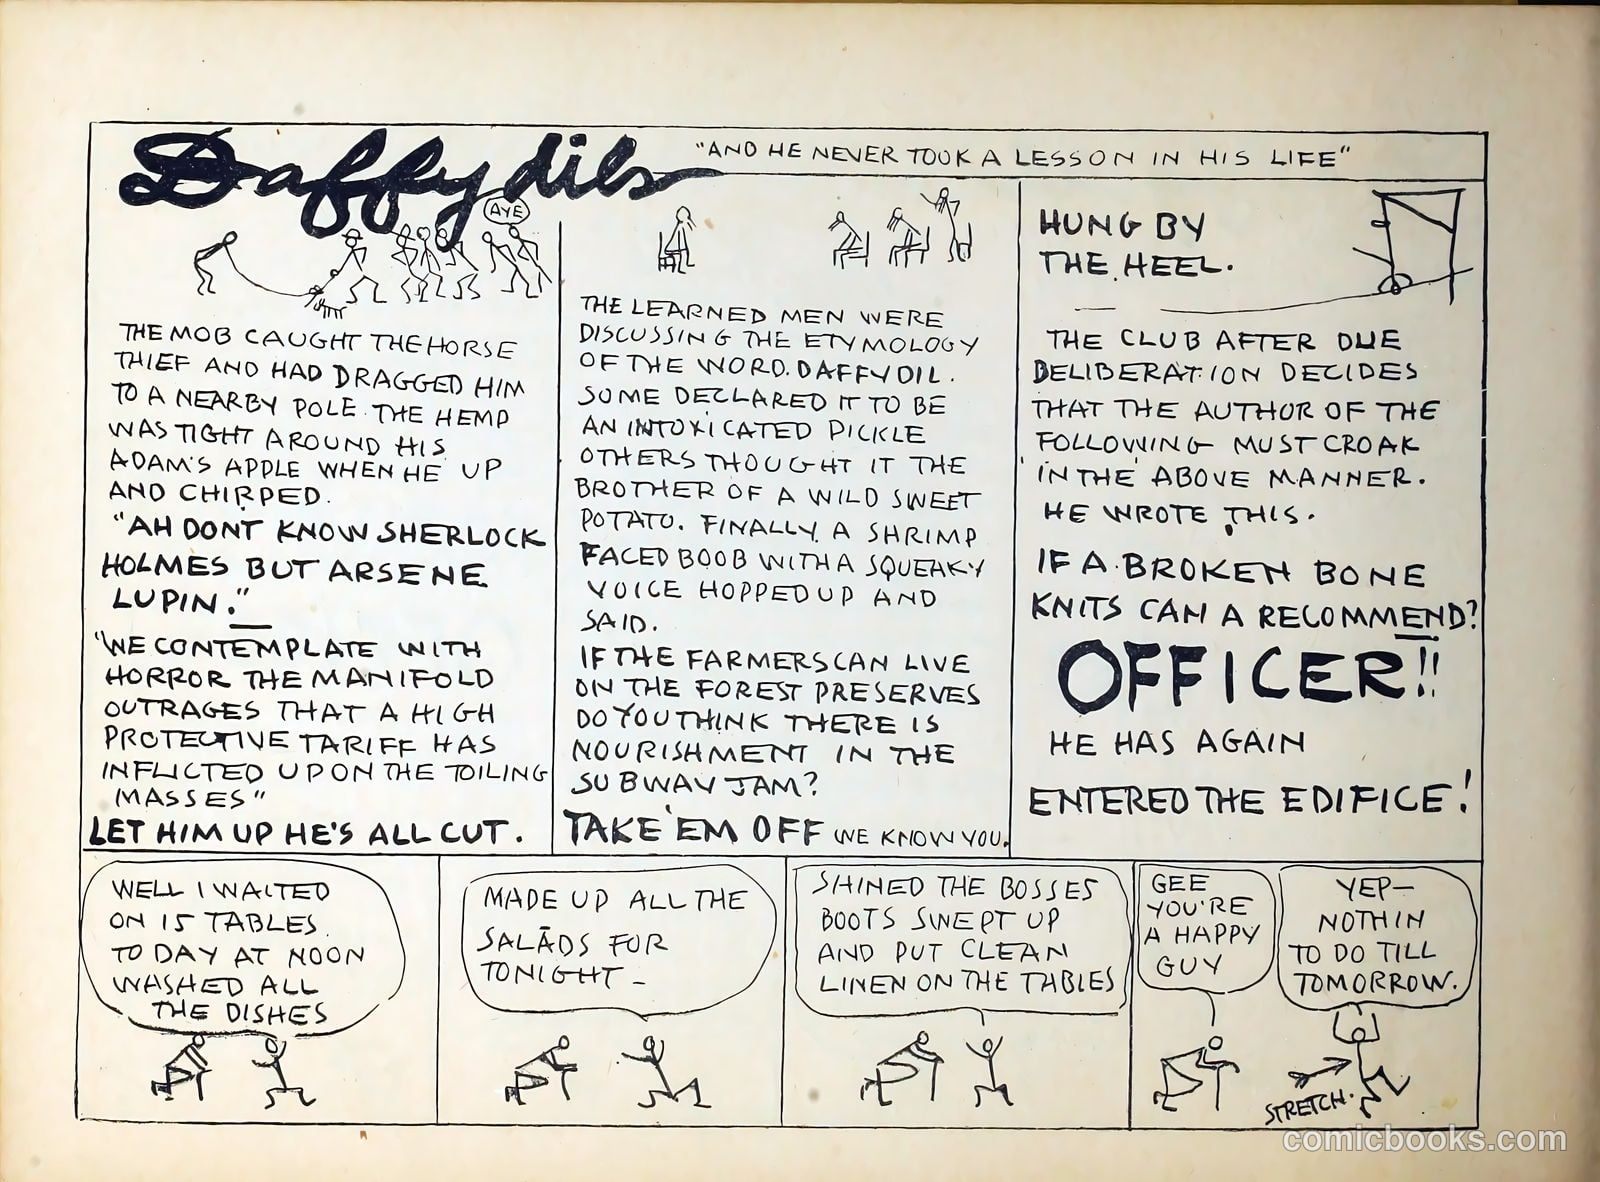 Daffydils
"AND HE NEVER TOOK A LESSON IN HIS LIFE"
AYE
THE MOB CAUGHT THE HORSE
THIEF AND HAD DRAGGED HIM
TO A NEARBY POLE. THE HEMP
WAS TIGHT AROUND HIS
ADAM'S APPLE WHEN HE UP
AND CHIRPED.
"AH DONT KNOW SHERLOCK
HOLMES BUT ARSENE
LUPIN."
"WE CONTEMPLATE WITH
HORROR THE MANIFOLD
OUTRAGES THAT A HIGH
PROTECTIVE TARIFF HAS
INFLICTED UPON THE TOILING
MASSES"
LET HIM UP HE'S ALL CUT.
THE LEARNED MEN WERE
DISCUSSING THE ETYMOLOGY
OF THE WORD. DAFFYDIL.
SOME DECLARED IT TO BE
AN INTOXICATED PICKLE
OTHERS THOUGHT IT THE
BROTHER OF A WILD SWEET
POTATO. FINALLY A SHRIMP
FACED BOOB WITH A SQUEAKY
VOICE HOPPED UP AND
SAID.
IF THE FARMERS CAN LIVE
ON THE FOREST PRESERVES
DO YOU THINK THERE IS
NOURISHMENT IN THE
SUBWAY JAM?
TAKE 'EM OFF WE KNOW YOU.
HUNG BY
THE HEEL.
THE CLUB AFTER DUE
DELIBERATION DECIDES
THAT THE AUTHOR OF THE
FOLLOWING MUST CROAK
IN THE ABOVE MANNER.
HE WROTE THIS.
IF A BROKEN BONE
KNITS CAN A RECOMMEND?
OFFICER!!
HE HAS AGAIN
ENTERED THE EDIFICE!
WELL I WAITED
ON 15 TABLES
TO DAY AT NOON
WASHED ALL
THE DISHES
MADE UP ALL THE
SALADS FOR
TONIGHT —
SHINED THE BOSSES
BOOTS SWEPT UP
AND PUT CLEAN
LINEN ON THE TABLES
GEE
YOU'RE
A HAPPY
GUY
YEP—
NOTHIN
TO DO TILL
TOMORROW.
STRETCH.
comicbooks.com